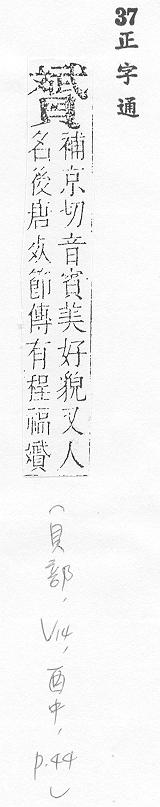 37正字通
贇
補京切音賓美好貌又人
名後唐死節傳有程福贇
(貝部, V14, 酉中, p.44)